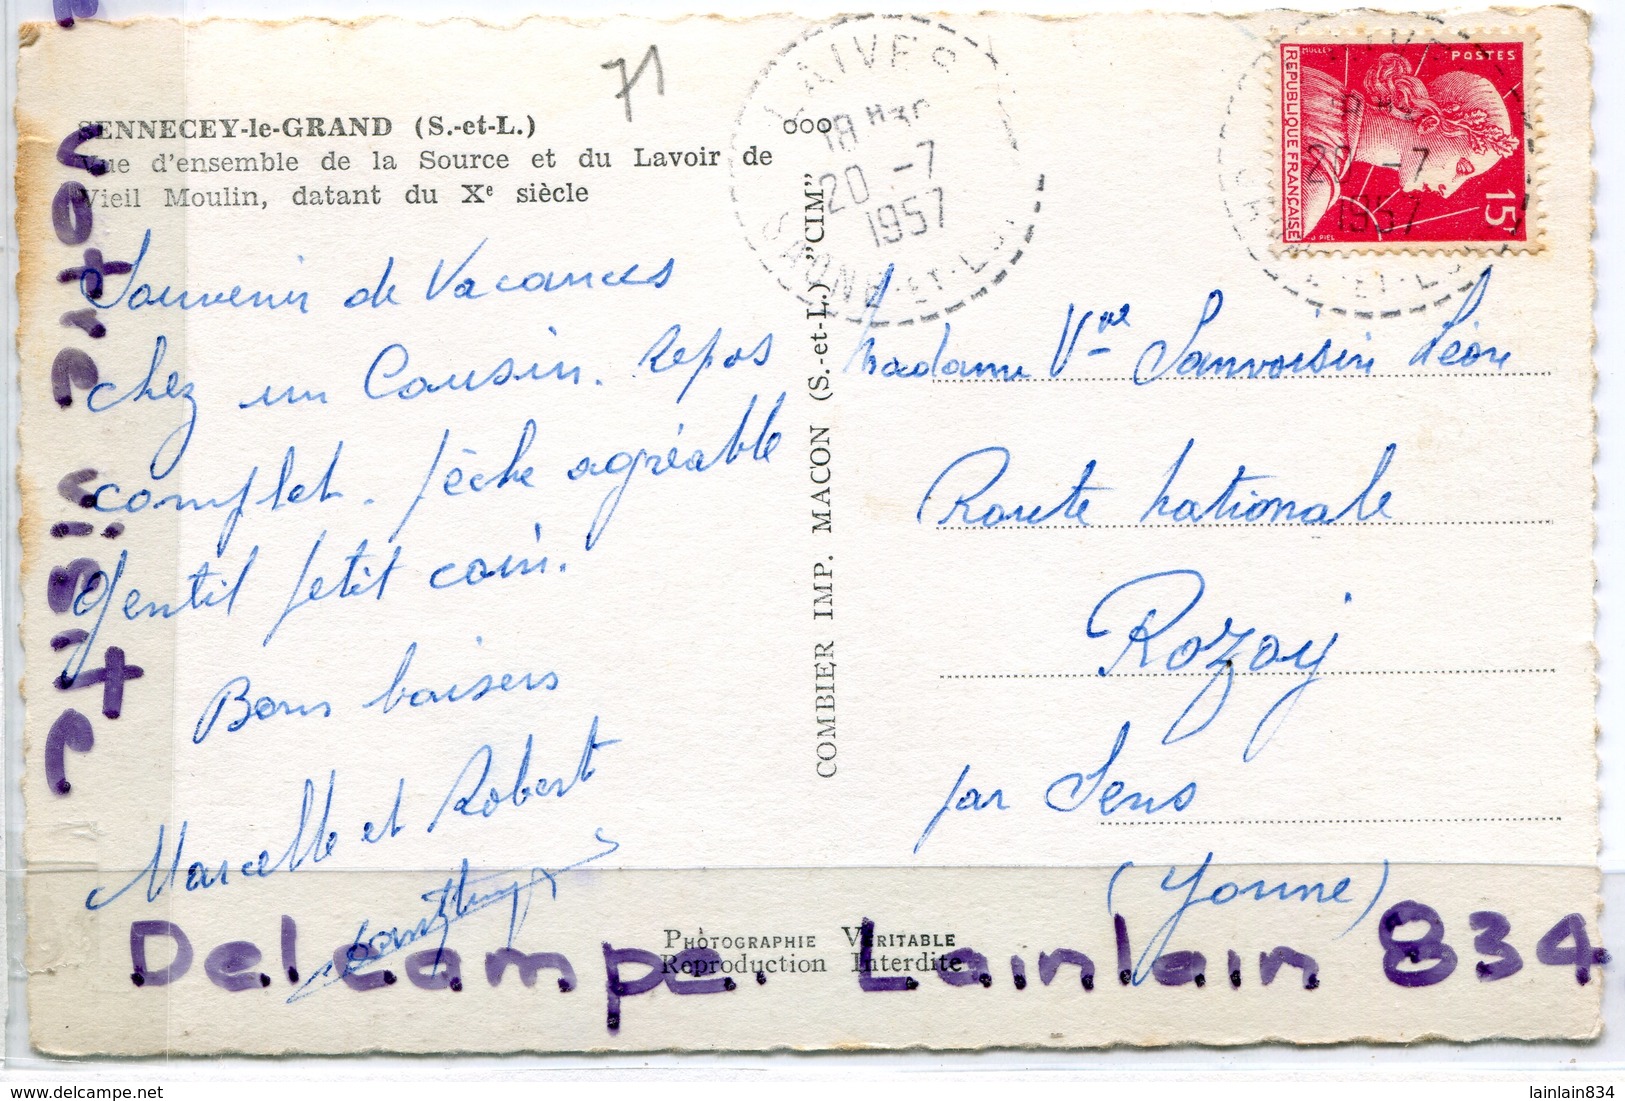 71
SENNECEY-le-GRAND (S.-et-L.)
Vue d'ensemble de la Source et du Lavoir de
Vieil Moulin, datant du Xe siècle
Souvenir de Vacances
chez un Cousin. Repos
complet. pêche agréable
gentil petit coin.
Bons baisers
Marcelle et Robert
COMBIER IMP. MACON (S.-et-L.) "CIM"
LAIVES
18 H30
20 -7
1957
SAONE-ET-L
MULLER
POSTES
REPUBLIQUE FRANÇAISE
15F
PIEL
20 -7
1957
Madame Vve Sanvoisin Léon
Route Nationale
Rozoy
par Sens
(Yonne)
PHOTOGRAPHIE VÉRITABLE
Reproduction Interdite
votre visite
Delcampe. Lainlain 834
delcampe.net
lainlain834